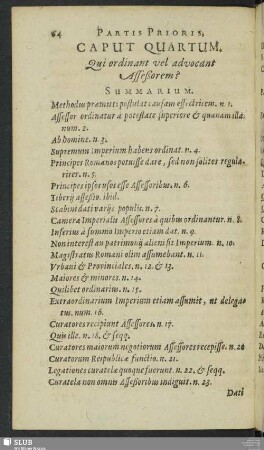 64 PARTIS PRIORIS,
CAPUT QUARTUM.
Qui ordinant vel advocant
Assessorem?
SUMMARIUM.
Methodus præmissa postulat causam effectricem. n. 1.
Assessor ordinatur a potestate superiore & quanam illa
num. 2.
Ab homine. n. 3.
Supremum imperium habens ordinat. n. 4.
Principes Romanos potuisse dare, sed non solitos regula-
riter. n. 5.
Principes ipsos usos esse Assessoribus. n. 6.
Tiberij assessio. ibid.
Stabini dati varijs populis. n. 7.
Cameræ Imperialis Assessores à quibus ordinantur. n. 8.
Inferius à summo Imperio etiam dat. n. 9.
Non interest au patrimonij aliens sit Imperium. n. 10.
Magistratus Romani olim assumebant. n. 11.
Urbani & Provinciales. n. 12. & 13.
Maiores & minores. n. 14.
Quilibet ordinarius. n. 15.
Extraordinarium Imperium etiam assumit, ut delega-
tus. num. 16.
Curatores recipiunt Assessores. n. 17.
Quis ille. n. 18. & seqq.
Curatores maiorum negotiorum Assessores recepisse. n. 20
Curatorum Reipublicæ functio. n. 21.
Legationes curatelæ quoque fuerunt. n. 22. & seqq.
Curatela non omnis Assessoribus indiguit. n. 23.
Dati
SLUB